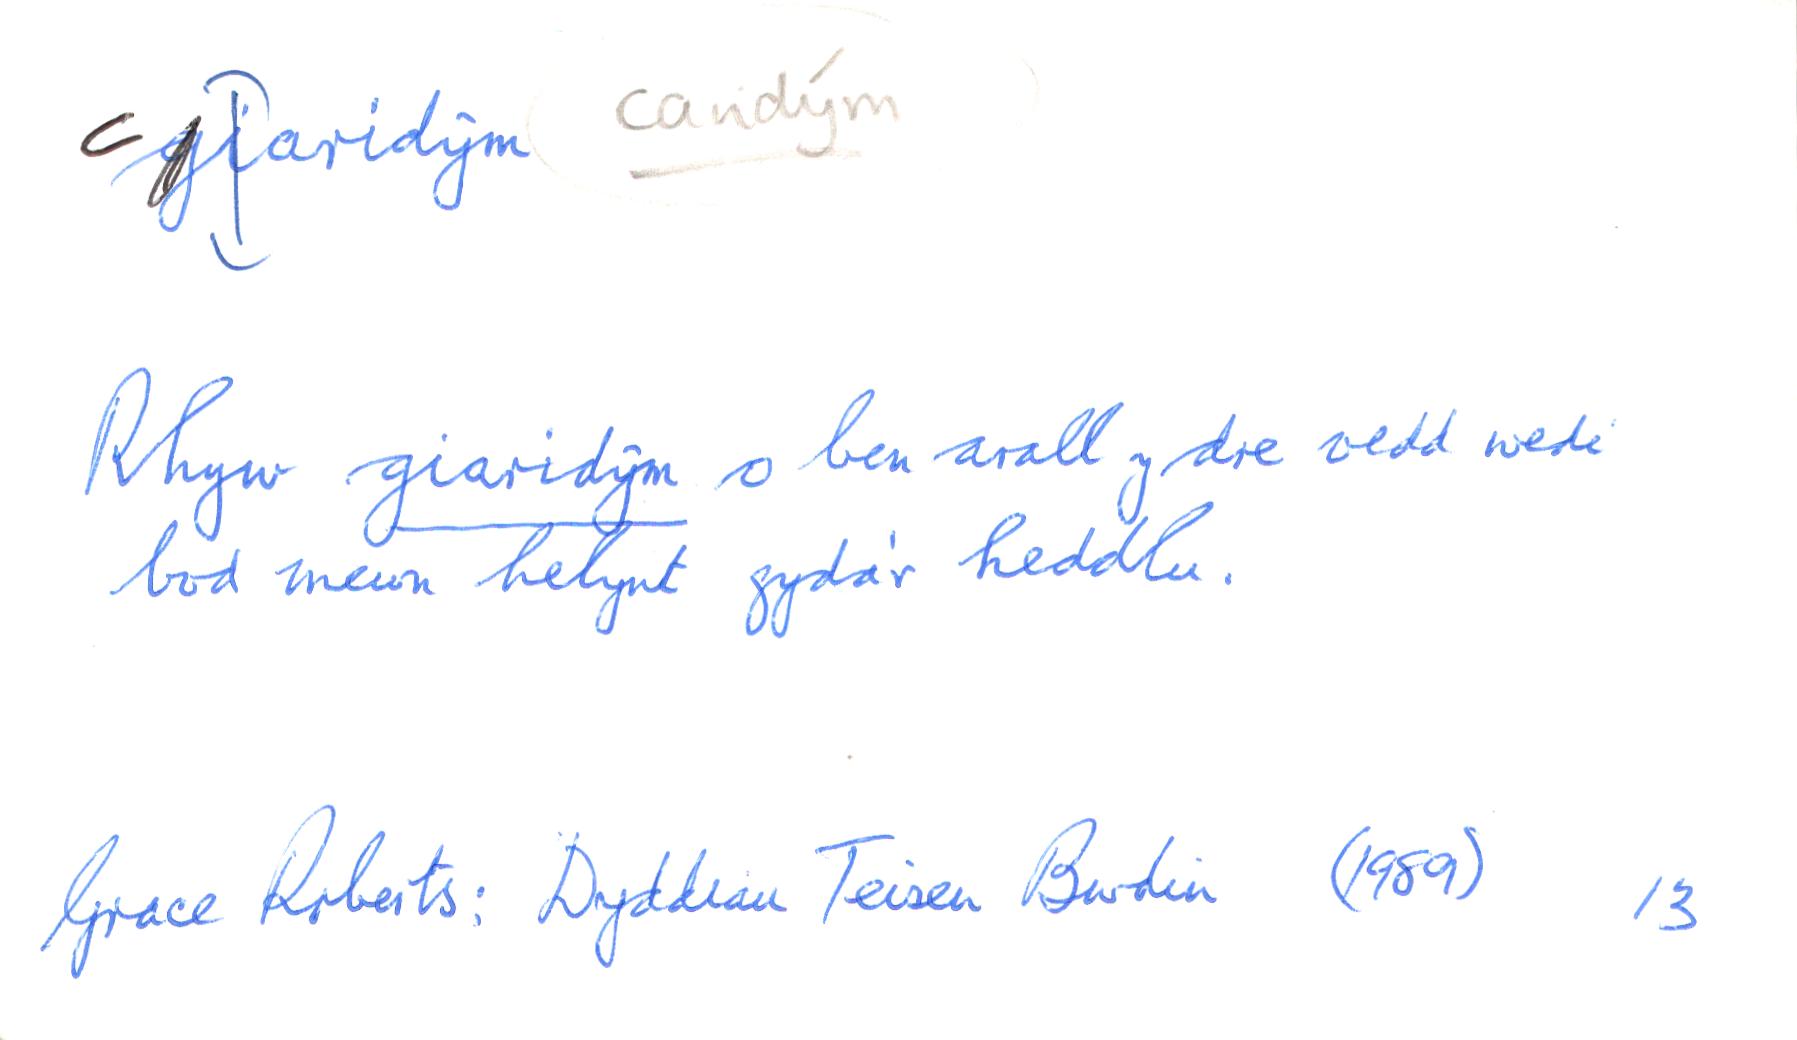 c giaridým caridým
Rhyw giaridým o ben arall y dre oedd wedi
bod mewn helynt gyda'r heddlu.
Grace Roberts: Dyddiau Teisen Bwdin (1989) 13